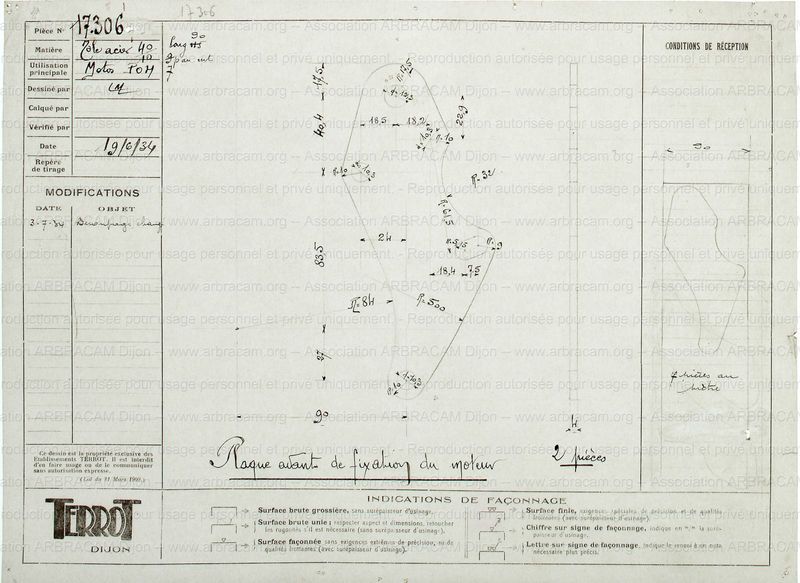 17.306
Pièce N° 17.306
Matière Tôle acier 40/10
Utilisation principale Motos
Dessiné par LM
Calqué par
Vérifié par
Date 19/6/34
Repère de tirage
MODIFICATIONS
DATE OBJET
3-7-34 Découpage
CONDITIONS DE RÉCEPTION
90
17,5
40,4
83,5
27
90
18,5
18,2
22,9
R.10
R.10
R.32
R.61,5
24
R.9
18,4
7,5
R=84
R=500
R.10
4
90
Plaque avant de fixation du moteur
2 pièces
Ce dessin est la propriété exclusive des
Etablissements TERROT. Il est interdit
d'en faire usage ou de le communiquer
sans autorisation expresse.
(Loi du 11 Mars 1902.)
TERROT
DIJON
INDICATIONS DE FAÇONNAGE
Surface brute grossière, sans surépaisseur d'usinage.
Surface brute unie ; respecter aspect et dimensions, retoucher
les rugosités s'il est nécessaire (sans surépaisseur d'usinage).
Surface façonnée sans exigences extrêmes de précision, ni de
qualités frottantes (avec surépaisseur d'usinage).
Surface finie, exigences spéciales de précision et de qualités
frottantes (avec surépaisseur d'usinage).
Chiffre sur signe de façonnage, indique en m/m la surépaisseur d'usinage.
Lettre sur signe de façonnage, indique le renvoi à un note
nécessaire plus précis.
www.arbracam.org – Association ARBRACAM Dijon
Reproduction autorisée pour usage personnel et privé uniquement.